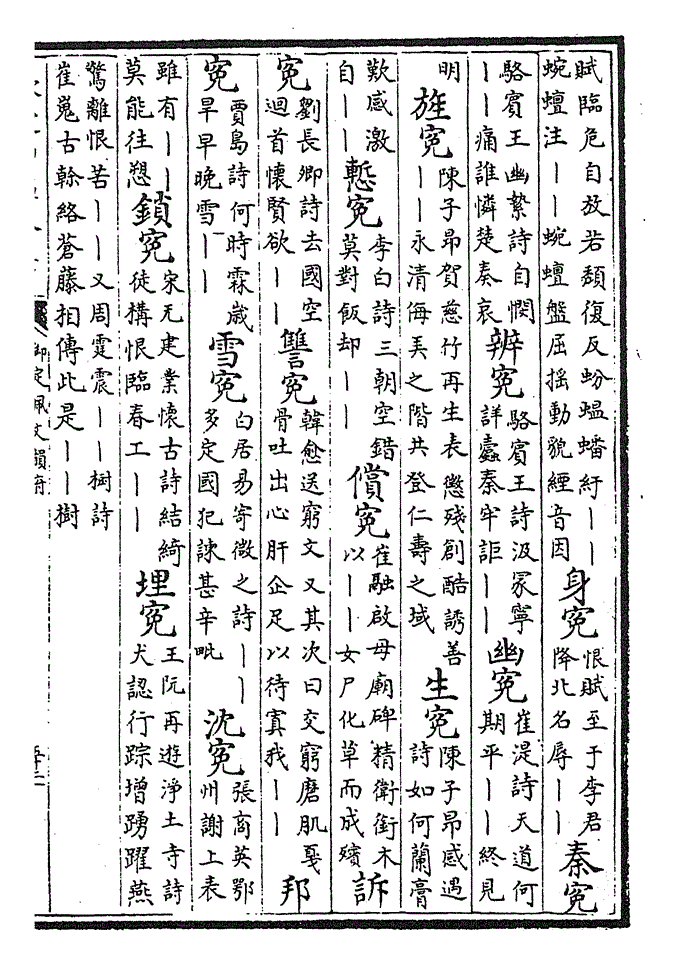 賦臨危自放若頽復反蚡蝹蟠紆丨丨蜿蟺注丨丨蜿蟺盤屈揺動貌緾音因 身寃 恨賦至于李君降北名辱丨丨 秦寃
駱賓王幽縶詩自憫丨丨痛誰憐楚奏哀 辨寃 駱賓王詩汲冢寧詳蠹秦牢詎丨丨 幽寃 崔湜詩天道何期平丨丨終見
明 旌寃 陳子昂賀慈竹再生表懲殘創酷誘善丨丨永清侮美之階共登仁壽之域 生寃 陳子昂感遇詩如何蘭膏
歎感激自丨丨 慙寃 李白詩三朝空錯莫對飯却丨丨 償寃 崔融啟母廟碑精衛銜木以丨丨女尸化草而成殯 訴
寃 劉長卿詩去國空迴首懷賢欲丨丨 讐寃 韓愈送窮文又其次曰交窮磨肌戛骨吐出心肝企足以待寘我丨丨 邦
寃 賈島詩何時霖歲旱早晚雪丨丨 雪寃 白居易寄微之詩丨丨多定國犯諫甚辛毗 沈寃 張商英鄂州謝上表
雖有丨丨莫能往愬 鎖寃 宋无建業懷古詩結綺徒構恨臨春工丨丨 埋寃 王阮再遊淨土寺詩犬認行踪增踴躍燕
驚離恨苦丨丨又周霆震丨丨樹詩崔嵬古榦絡蒼藤相傳此是丨丨樹
御定佩文韻府